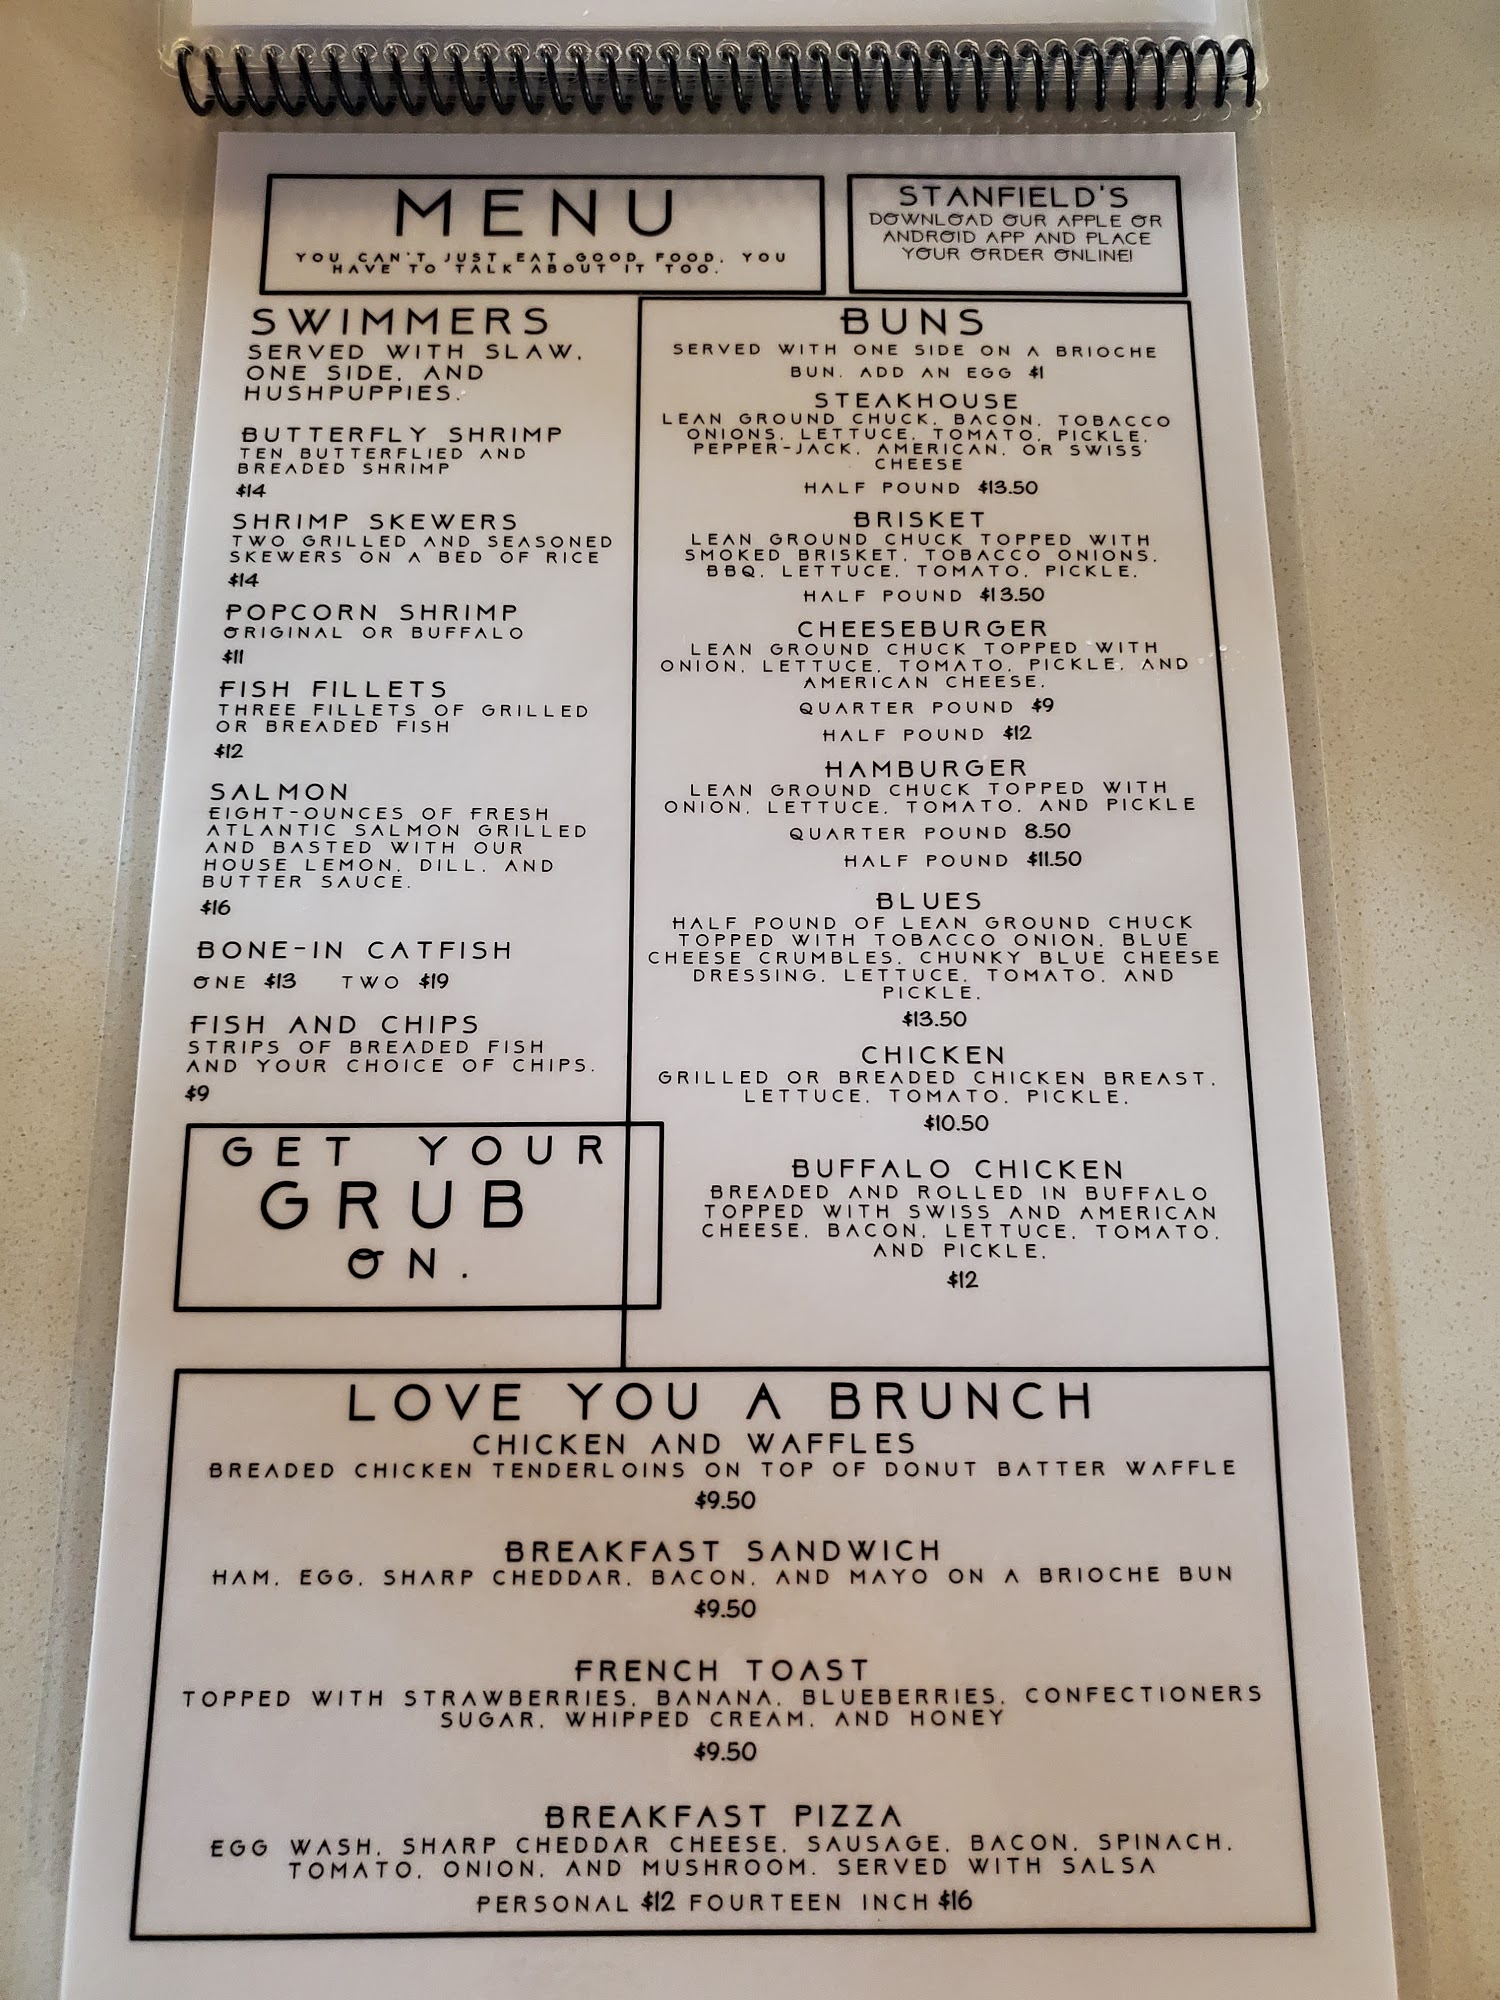 MENU
YOU CAN'T JUST EAT GOOD FOOD, YOU
HAVE TO TALK ABOUT IT TOO.
STANFIELD'S
DOWNLOAD OUR APPLE OR
ANDROID APP AND PLACE
YOUR ORDER ONLINE!
SWIMMERS
SERVED WITH SLAW,
ONE SIDE, AND
HUSHPUPPIES.
BUTTERFLY SHRIMP
TEN BUTTERFLIED AND
BREADED SHRIMP
$14
SHRIMP SKEWERS
TWO GRILLED AND SEASONED
SKEWERS ON A BED OF RICE
$14
POPCORN SHRIMP
ORIGINAL OR BUFFALO
$11
FISH FILLETS
THREE FILLETS OF GRILLED
OR BREADED FISH
$12
SALMON
EIGHT-OUNCES OF FRESH
ATLANTIC SALMON GRILLED
AND BASTED WITH OUR
HOUSE LEMON, DILL, AND
BUTTER SAUCE.
$16
BONE-IN CATFISH
ONE $13 TWO $19
FISH AND CHIPS
STRIPS OF BREADED FISH
AND YOUR CHOICE OF CHIPS.
$9
GET YOUR
GRUB
ON.
BUNS
SERVED WITH ONE SIDE ON A BRIOCHE
BUN. ADD AN EGG $1
STEAKHOUSE
LEAN GROUND CHUCK, BACON, TOBACCO
ONIONS, LETTUCE, TOMATO, PICKLE,
PEPPER-JACK, AMERICAN, OR SWISS
CHEESE
HALF POUND $13.50
BRISKET
LEAN GROUND CHUCK TOPPED WITH
SMOKED BRISKET, TOBACCO ONIONS,
BBQ, LETTUCE, TOMATO, PICKLE.
HALF POUND $13.50
CHEESEBURGER
LEAN GROUND CHUCK TOPPED WITH
ONION, LETTUCE, TOMATO, PICKLE, AND
AMERICAN CHEESE.
QUARTER POUND $9
HALF POUND $12
HAMBURGER
LEAN GROUND CHUCK TOPPED WITH
ONION, LETTUCE, TOMATO, AND PICKLE
QUARTER POUND 8.50
HALF POUND $11.50
BLUES
HALF POUND OF LEAN GROUND CHUCK
TOPPED WITH TOBACCO ONION, BLUE
CHEESE CRUMBLES, CHUNKY BLUE CHEESE
DRESSING, LETTUCE, TOMATO, AND
PICKLE.
$13.50
CHICKEN
GRILLED OR BREADED CHICKEN BREAST,
LETTUCE, TOMATO, PICKLE.
$10.50
BUFFALO CHICKEN
BREADED AND ROLLED IN BUFFALO
TOPPED WITH SWISS AND AMERICAN
CHEESE, BACON, LETTUCE, TOMATO,
AND PICKLE.
$12
LOVE YOU A BRUNCH
CHICKEN AND WAFFLES
BREADED CHICKEN TENDERLOINS ON TOP OF DONUT BATTER WAFFLE
$9.50
BREAKFAST SANDWICH
HAM, EGG, SHARP CHEDDAR, BACON, AND MAYO ON A BRIOCHE BUN
$9.50
FRENCH TOAST
TOPPED WITH STRAWBERRIES, BANANA, BLUEBERRIES, CONFECTIONERS
SUGAR, WHIPPED CREAM, AND HONEY
$9.50
BREAKFAST PIZZA
EGG WASH, SHARP CHEDDAR CHEESE, SAUSAGE, BACON, SPINACH,
TOMATO, ONION, AND MUSHROOM. SERVED WITH SALSA
PERSONAL $12 FOURTEEN INCH $16